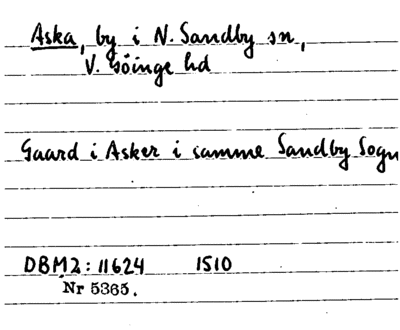 Aska, by i N. Sandby sn,
V. Göinge hd
Gaard i Asker i samme Sandby Sogn
DBM2: 11624 1510
Nr 5365.